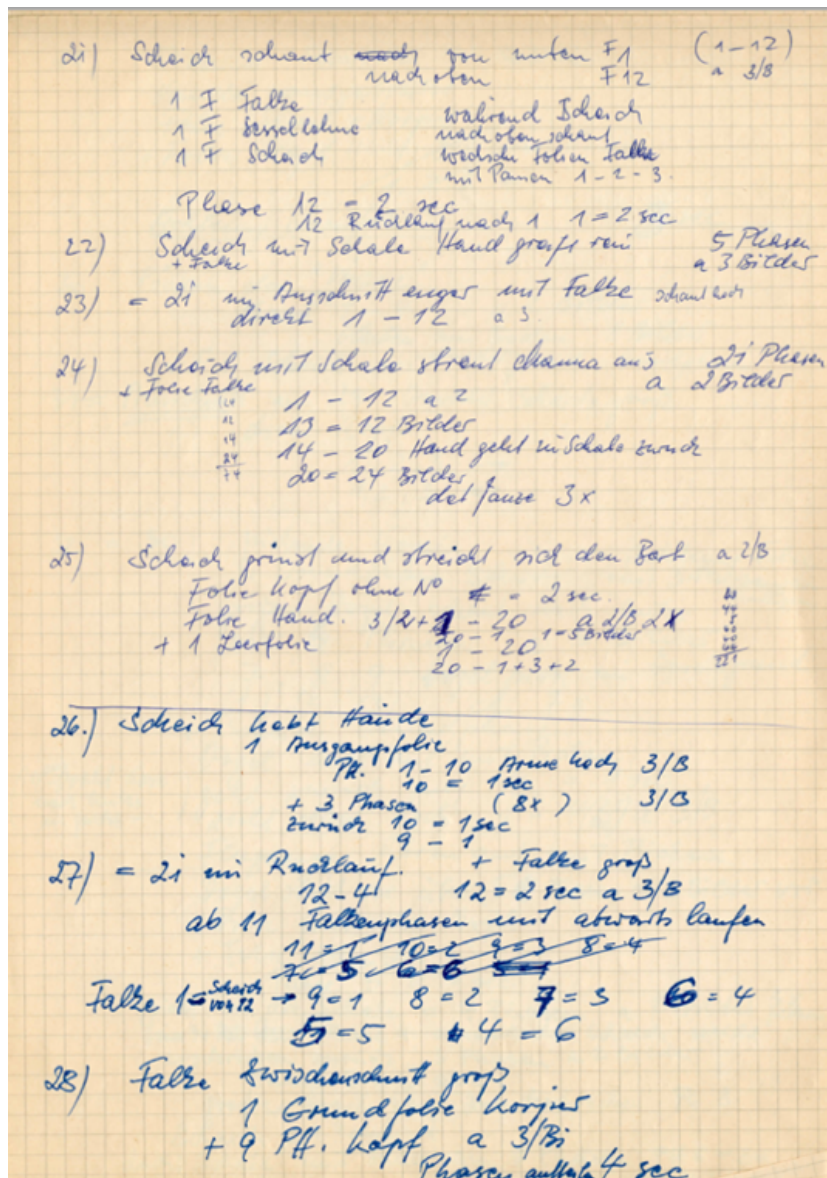 21) Scheich schaut nach von unten F1 (1-12)
nach oben F12 a 3/B
1 F Falke
1 F Sessellehne während Scheich
nach oben schaut
1 F Scheich wechseln Folien Falke
mit 1-2-3.
Phase 12 = 2 sec
12 Rücklauf nach 1 1=2 sec
22) Scheich mit Schale Hand greift rein 5 Phasen
+ Falke a 3 Bilder
23) = 21 im Ausschnitt enger mit Falke schaut hoch
direkt 1 - 12 a 3
24) Scheich mit Schale streut Manna aus 21 Phasen
+ Folie Falke a 2 Bilder
1 - 12 a 2
13 = 12 Bilder
14 - 20 Hand geht in Schale zurück
20 = 24 Bilder
dat janze 3x
24
12
14
24
74
25) Scheich grinst und streicht sich den Bart a 2/B
Folie Kopf ohne No = 2 sec.
Folie Hand. 3/2+1 - 20 a 2/B 2x
20 - 1 1=5 Bilder
+ 1 Leerfolie 1 - 20
20 - 1+3+2
26.) Scheich hebt Hände
1 Ausgangsfolie
Ph. 1-10 Arme hoch 3/B
10 = 1sec
+ 3 Phasen (8x) 3/B
zurück 10 = 1sec
9 - 1
27) = 21 im Rücklauf. + Falke groß
12-4 12=2 sec a 3/B
ab 11 Falkenphasen mit abwärts laufen
11=1 10=2 9=3 8=4
7=5 6=6
Falke 1= Scheich von 12 → 9=1 8=2 7=3 6=4
5=5 4=6
28) Falke Zwischenschnitt groß
1 Grundfolie Körper
+ 9 Ph. Kopf a 3/Bi
Phasen 4 sec